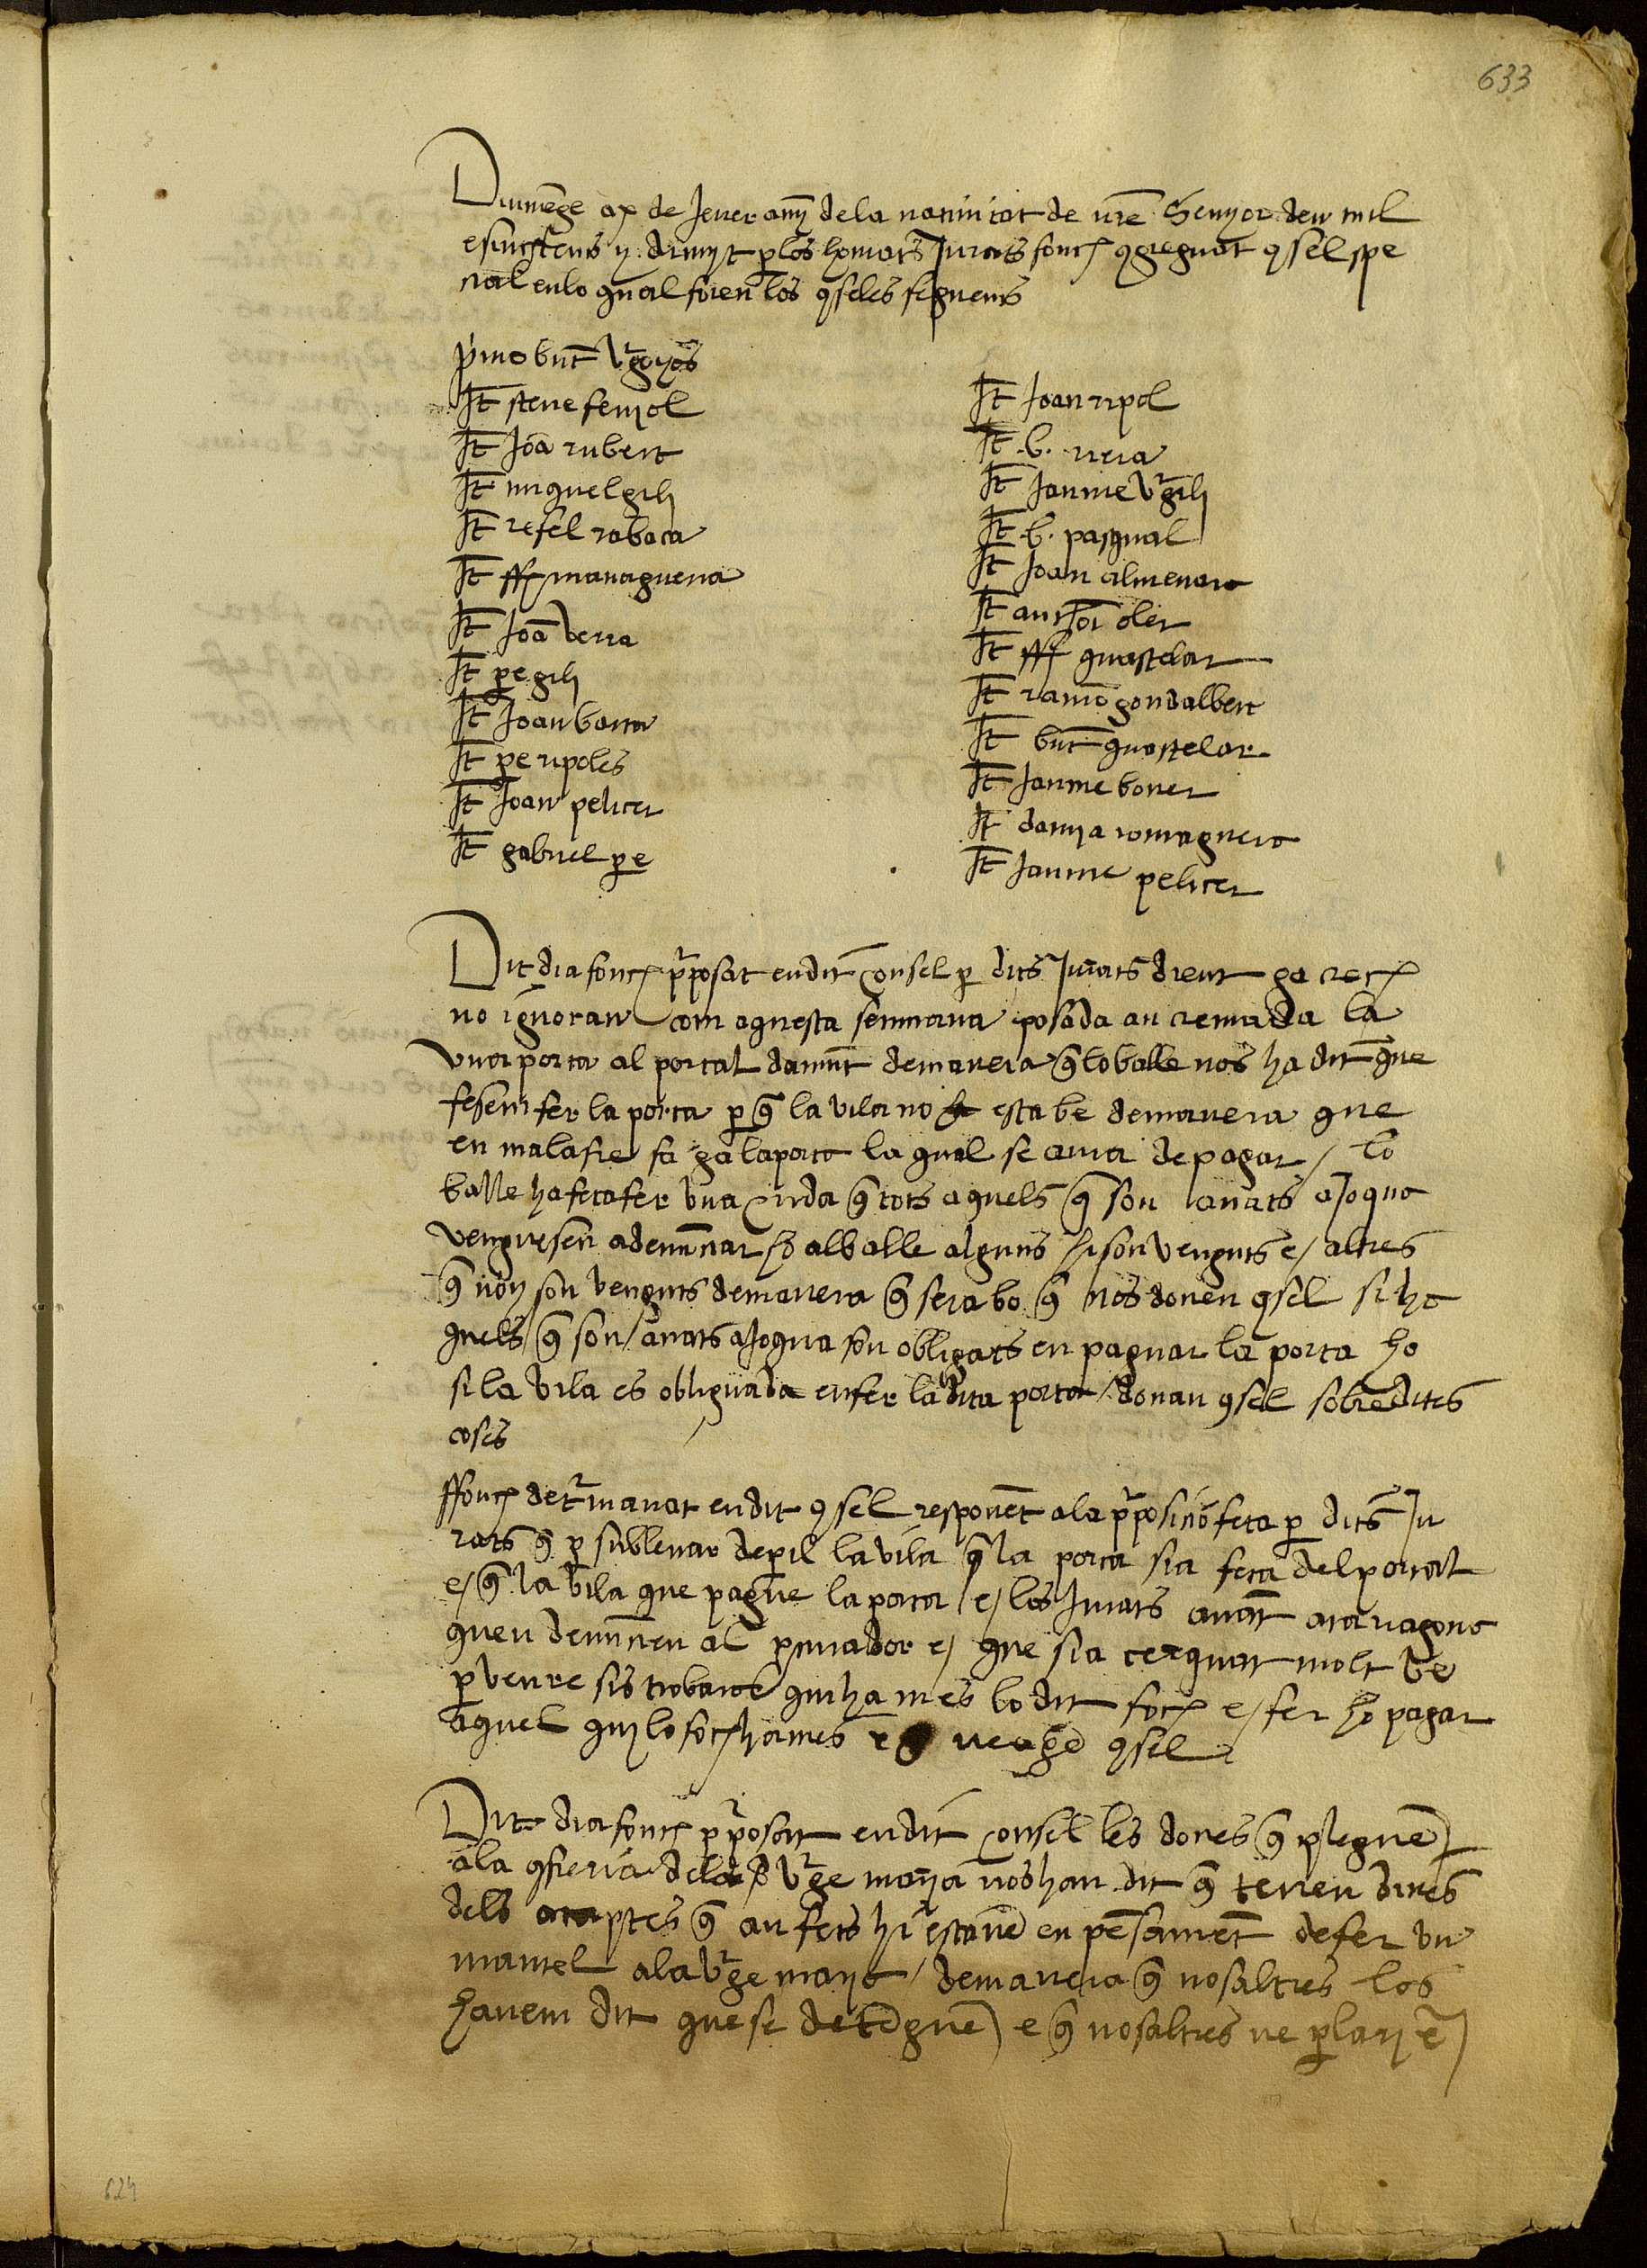 633
Diumēge a x de Jener any de la nativitat de nr̄e Senyor deu mil
e sinchcens y. dins lt p los honrats Jurats fonch ꝯgreguat ꝯsel spe
cial en lo qual foren los ꝯseles seguens
pr̄mo bnt̄
It̄ steve fenyol
It̄ Joā rubert
It̄ miquel gili
It̄ refel rabaca
It̄ ff managuera
It̄ Joā verra
It̄ pe gili
It̄ Joan barra
It̄ pe ripoles
It̄ Joan pelicer
It̄ gabriel pe
It̄ Joan ripol
It̄ b. riera
It̄ Jaume vrgili
It̄ b. pasqual
It̄ Joan almenara
It̄ anthoī oler
It̄ ff guastelar
It̄ ramō gondalbert
It̄ bnt̄ guastelar
It̄ Jaume bover
It̄ damya romaguera
It̄ Jaume pelicer
Dit dia fonch pposat en dit Consel p dits Jurats dient ga crech
no ignoran com aquesta semmana posada an cremada la
una porta al portal damūt de manera q̄ lo balle nos ha dit que
fesem fer la porta p q̄ la vila no esta be de manera que
en mala fie fa ga la porta la qual se aura de pagar / lo
balle ha feta fer una crida q̄ tots aquels q̄ son anats a Joqua
venguesen a denūciar ho al balle alguns hi son venguts e / altres
q̄ noy son venguts de manera q̄ sera bo q̄ nos donen ꝯsel si ha
quels q̄ son / anats a Joqua son obligats en paguar la porta ho
si la vila es obliguada en fer la dita porta / donan ꝯsel sobre dites
coses
ffonch detr̄manat en dit ꝯsel responēt a la pposicio feta p dits Ju
rats q̄ p sublevar de peril la vila q̄ la porta sia feta del portal
e / q̄ la vila que pague la porta / e / los Jurats anāt a taragona
que u denūcien al pcurador e / que sia cerquat molt be
p veure sis trobara qui ha mes lo dit foch e / fer ho pagar
aquel qui lo foch ha mes ꝯsel
Dit dia fonch pposat en dit Consel les dones q̄ pleguē
a la ꝯfreria de la vr̄ge maria nos han dit q̄ tenen dines
dels acaptes q̄ an fets hi estavē en pēsamēt de fer un
mantel a la vr̄ge maria / de manera q̄ nosaltres los
havem dit que se detīguē e q̄ nosaltres ne plariē
624